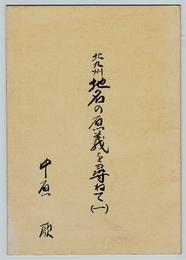 北九州
地名の原義を尋ねて(一)
中原